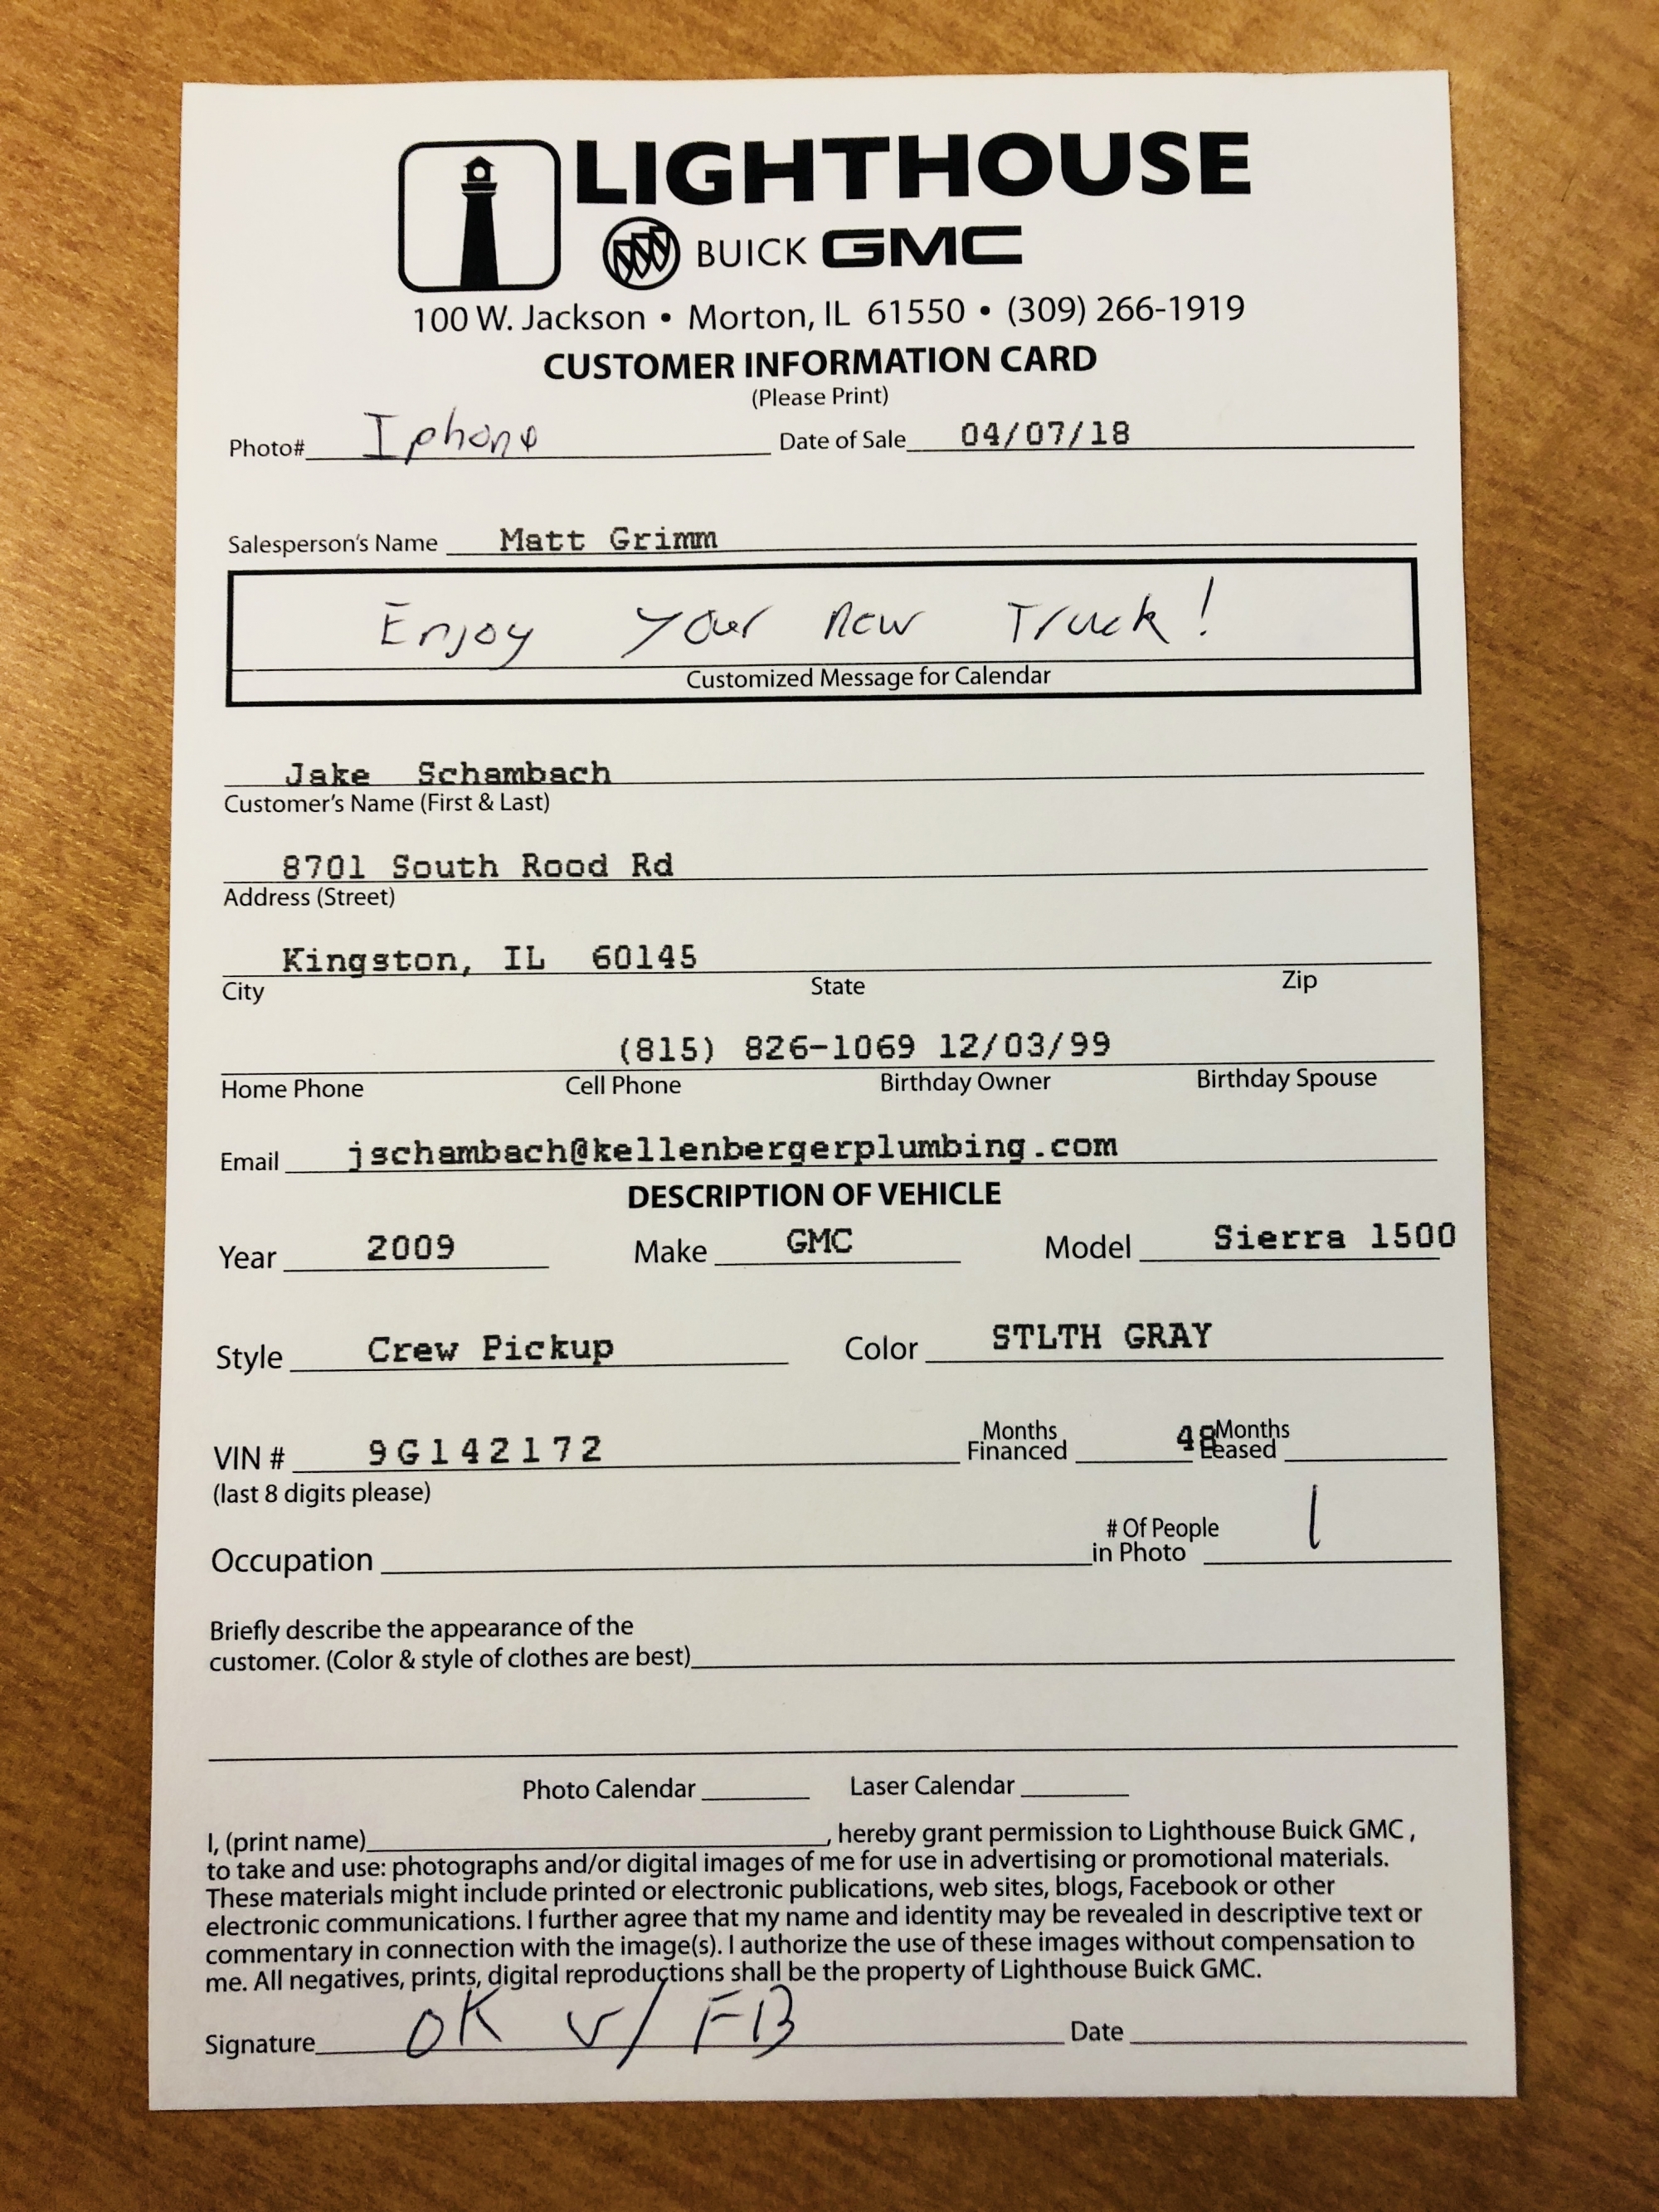 LIGHTHOUSE
BUICK GMC
100 W. Jackson • Morton, IL 61550 • (309) 266-1919
CUSTOMER INFORMATION CARD
(Please Print)
Photo# Iphone Date of Sale 04/07/18
Salesperson's Name Matt Grimm
Enjoy your new Truck!
Customized Message for Calendar
Jake Schambach
Customer's Name (First & Last)
8701 South Rood Rd
Address (Street)
Kingston, IL 60145
City State Zip
(815) 826-1069 12/03/99
Home Phone Cell Phone Birthday Owner Birthday Spouse
Email jschambach@kellenbergerplumbing.com
DESCRIPTION OF VEHICLE
Year 2009 Make GMC Model Sierra 1500
Style Crew Pickup Color STLTH GRAY
VIN # 9G142172 Months Financed 48 Months Leased
(last 8 digits please)
Occupation # Of People in Photo 1
Briefly describe the appearance of the
customer. (Color & style of clothes are best)
Photo Calendar Laser Calendar
I, (print name) , hereby grant permission to Lighthouse Buick GMC ,
to take and use: photographs and/or digital images of me for use in advertising or promotional materials.
These materials might include printed or electronic publications, web sites, blogs, Facebook or other
electronic communications. I further agree that my name and identity may be revealed in descriptive text or
commentary in connection with the image(s). I authorize the use of these images without compensation to
me. All negatives, prints, digital reproductions shall be the property of Lighthouse Buick GMC.
Signature OK w/ FB Date